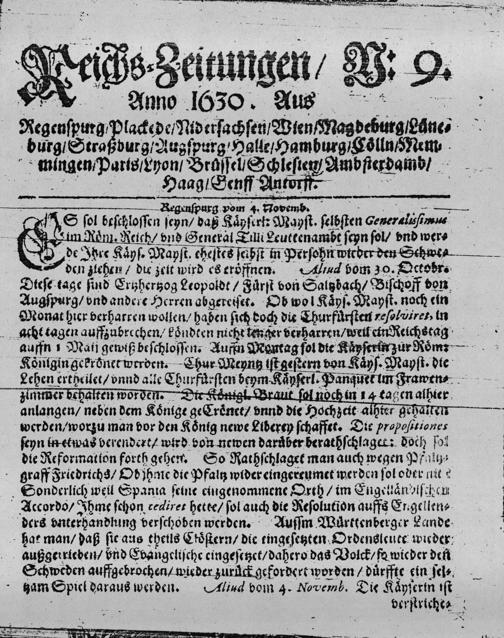 Reichs-Zeitungen / N: 9.
Anno 1630. Aus
Regenspurg/Plackede/Nidersachsen/Wien/Magdeburg/Lüne-
burg/Straßburg/Augspurg/Halle/Hamburg/Cölln/Mem-
mingen/Paris/Lyon/Brüssel/Schlesien/Ambsterdamb/
Haag/Genff Antorff.
Regenspurg vom 4. Novemb.
ES sol beschlossen seyn/ daß Käyserl: Mayst. selbsten Generalissimus
im Röm. Reich/ vnd General Tilli Leuttenambt seyn sol/ vnd wer-
de Ihre Käys. Mayst. ehestes selbst in Persohn wieder den Schwe-
den ziehen/ die zeit wird es eröffnen. Aliud vom 30. Octobr.
Diese tage sind Ertzhertzog Leopoldt/ Fürst von Saltzbach/ Bischoff von
Augspurg/ vnd andere Herren abgereiset. Ob wol Käys. Mayst. noch ein
Monat hier verharren wollen/ haben sich doch die Churfürsten resolviret, in
acht tagen auffzubrechen/ köndten nicht lenger verharren/ weil ein Reichstag
auffn 1 Maij gewiß beschlossen. Auffn Montag sol die Käyserin zur Röm:
Königin gekrönet werden. Chur Meyntz ist gestern von Käys. Mayst. die
Lehen ertheilet/ vnnd alle Churfürsten beym Käyserl. Panquet im Frawen-
zimmer behalten worden. Die Königl. Braut sol noch in 14 tagen alhier
anlangen/ neben dem Könige gecrönet/ vnnd die Hochzeit alhier gehalten
werden/ worzu man vor den König newe Liberey schaffet. Die propositiones
seyn in etwas verendert/ wird von newen darüber berathschlaget: doch sol
die Reformation forth gehen. So Rathschlaget man auch wegen Pfaltz-
graff Friedrichs/ Ob ihme die Pfaltz wider eingereumet werden sol oder nit
Sonderlich weil Spania seine eingenommene Orth/ im Engelländischen
Accordo/ Ihme schon cediret hette/ sol auch die Resolution auffs Engellen-
ders vnterhandlung verschoben werden. Aussm Württenberger Lande
hat man/ daß sie aus theils Clöstern/ die eingesetzten Ordensleute wieder
außgetrieben/ vnd Evangelische eingesetzt/ dahero das Volck/ so wieder den
Schweden auffgebrochen/ wieder zurück gefordert worden/ dürffte ein sel-
tzam Spiel daraus werden. Aliud vom 4. Novemb. Die Käyserin ist
verstriche-